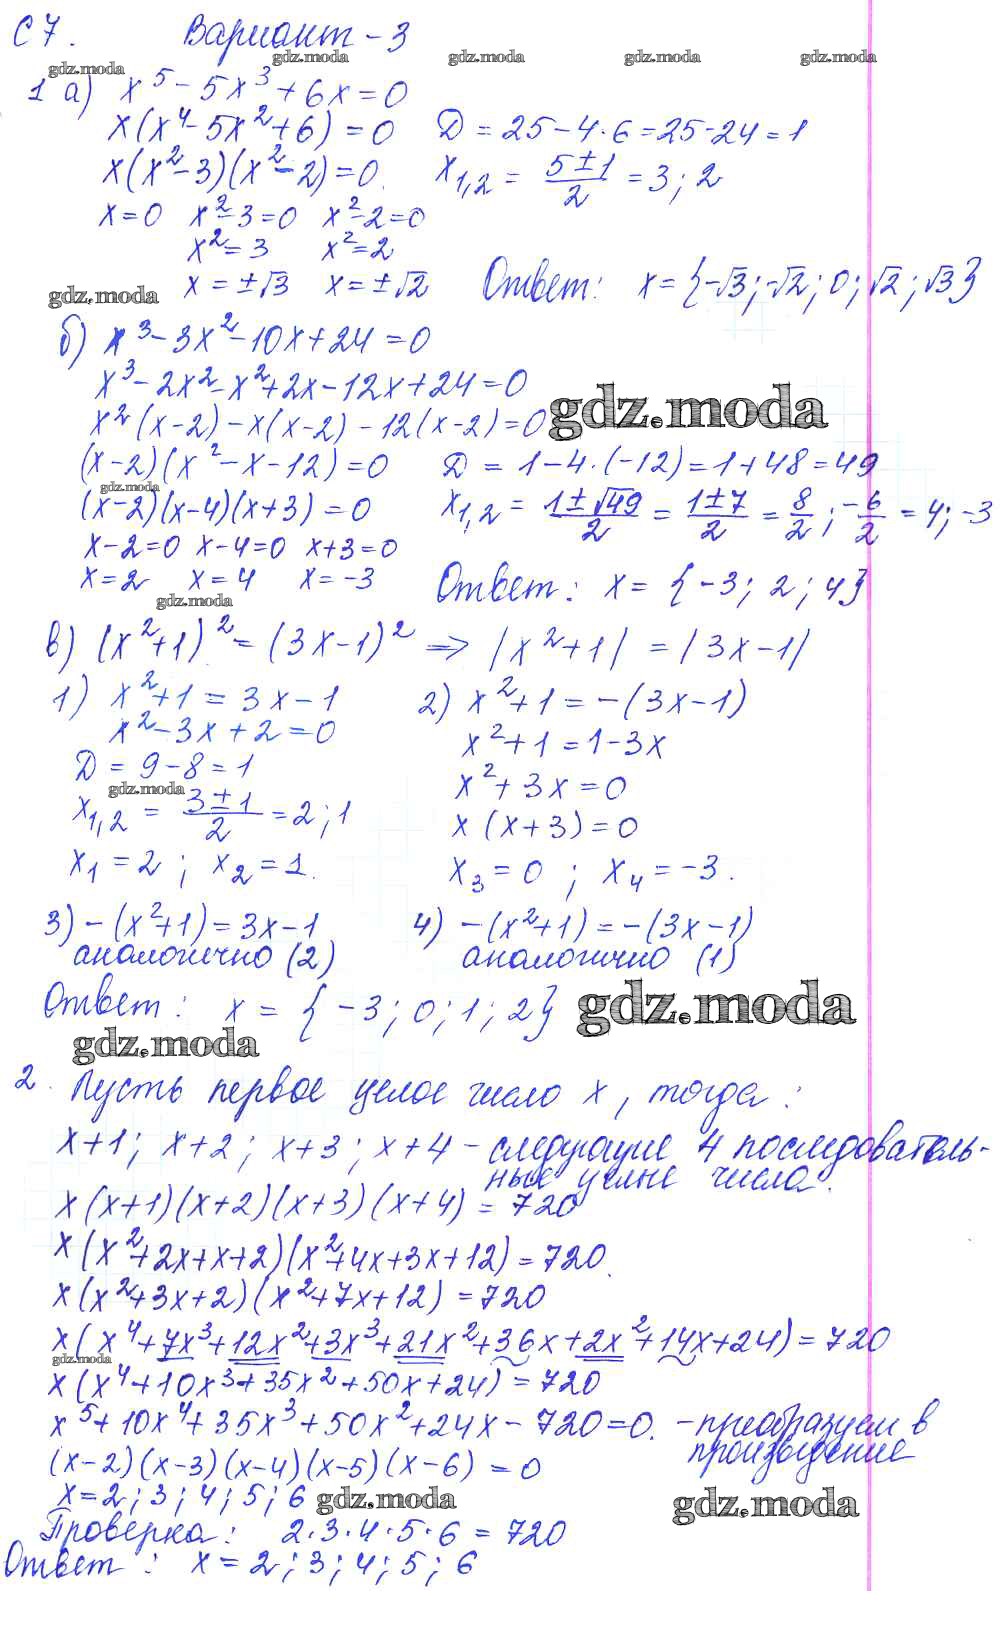 С 7. Вариант - 3
gdz.moda gdz.moda gdz.moda gdz.moda gdz.moda
1 а) x⁵ - 5x³ + 6x = 0
x(x⁴ - 5x² + 6) = 0 Д = 25 - 4·6 = 25 - 24 = 1
x(x² - 3)(x² - 2) = 0. x₁,₂ = (5 ± 1)/2 = 3; 2
x = 0 x² - 3 = 0 x² - 2 = 0
x² = 3 x² = 2
x = ±√3 x = ±√2 Ответ: x = {-√3; -√2; 0; √2; √3}
gdz.moda
б) x³ - 3x² - 10x + 24 = 0
x³ - 2x² - x² + 2x - 12x + 24 = 0
x²(x - 2) - x(x - 2) - 12(x - 2) = 0
gdz.moda
(x - 2)(x² - x - 12) = 0 Д = 1 - 4·(-12) = 1 + 48 = 49
gdz.moda
(x - 2)(x - 4)(x + 3) = 0 x₁,₂ = (1 ± √49)/2 = (1 ± 7)/2 = 8/2; -6/2 = 4; -3
x - 2 = 0 x - 4 = 0 x + 3 = 0
x = 2 x = 4 x = -3 Ответ: x = {-3; 2; 4}
gdz.moda
в) (x² + 1)² = (3x - 1)² => |x² + 1| = |3x - 1|
1) x² + 1 = 3x - 1 2) x² + 1 = -(3x - 1)
x² - 3x + 2 = 0 x² + 1 = 1 - 3x
Д = 9 - 8 = 1 x² + 3x = 0
gdz.moda
x₁,₂ = (3 ± 1)/2 = 2; 1 x(x + 3) = 0
x₁ = 2; x₂ = 1. x₃ = 0; x₄ = -3.
3) -(x² + 1) = 3x - 1 4) -(x² + 1) = -(3x - 1)
аналогично (2) аналогично (1)
Ответ: x = {-3; 0; 1; 2} gdz.moda
gdz.moda
2. Пусть первое целое число x, тогда:
x + 1; x + 2; x + 3; x + 4 - следующие 4 последователь-
ные целые числа.
x(x + 1)(x + 2)(x + 3)(x + 4) = 720
x(x² + 2x + x + 2)(x² + 4x + 3x + 12) = 720.
x(x² + 3x + 2)(x² + 7x + 12) = 720
x(x⁴ + 7x³ + 12x² + 3x³ + 21x² + 36x + 2x² + 14x + 24) = 720
gdz.moda
x(x⁴ + 10x³ + 35x² + 50x + 24) = 720
x⁵ + 10x⁴ + 35x³ + 50x² + 24x - 720 = 0. - преобразуем в
произведение
(x - 2)(x - 3)(x - 4)(x - 5)(x - 6) = 0
x = 2; 3; 4; 5; 6 gdz.moda gdz.moda
Проверка: 2·3·4·5·6 = 720
Ответ: x = 2; 3; 4; 5; 6